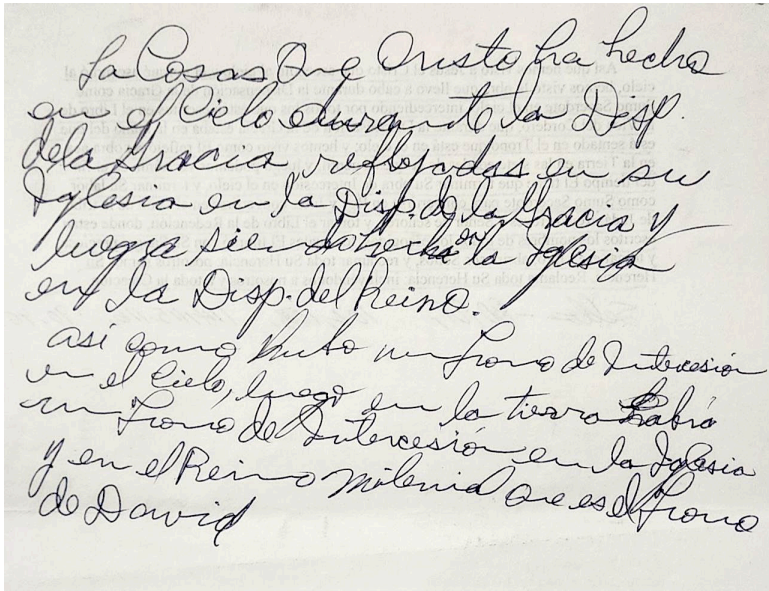 La Cosas Que Cristo ha hecho
en el Cielo durante la Disp.
de la Gracia reflejadas en su
Iglesia en la Disp. de la Gracia y
luego seran hecha en la Iglesia
en la Disp. del Reino.
así como hubo un Trono de Intercesión
en el Cielo, luego en la tierra habrá
un Trono de Intercesión en la Iglesia
y en el Reino milenial que es el Trono
de David